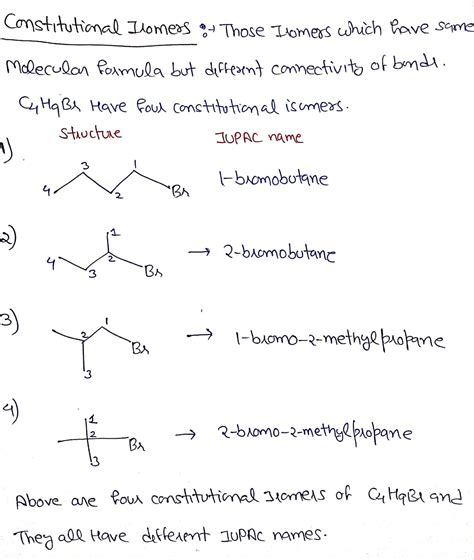 Constitutional Isomers :→ Those Isomers which have same
Molecular formula but different connectivity of bonds.
C4H9Br Have four constitutional isomers.
Structure IUPAC name
1)
3 1
4 2 Br 1-bromobutane
2)
1
4 2
3 Br → 2-bromobutane
3)
1
2
Br → 1-bromo-2-methylpropane
3
4)
1
2 Br → 2-bromo-2-methylpropane
3
Above are four constitutional Isomers of C4H9Br and
They all Have different IUPAC names.